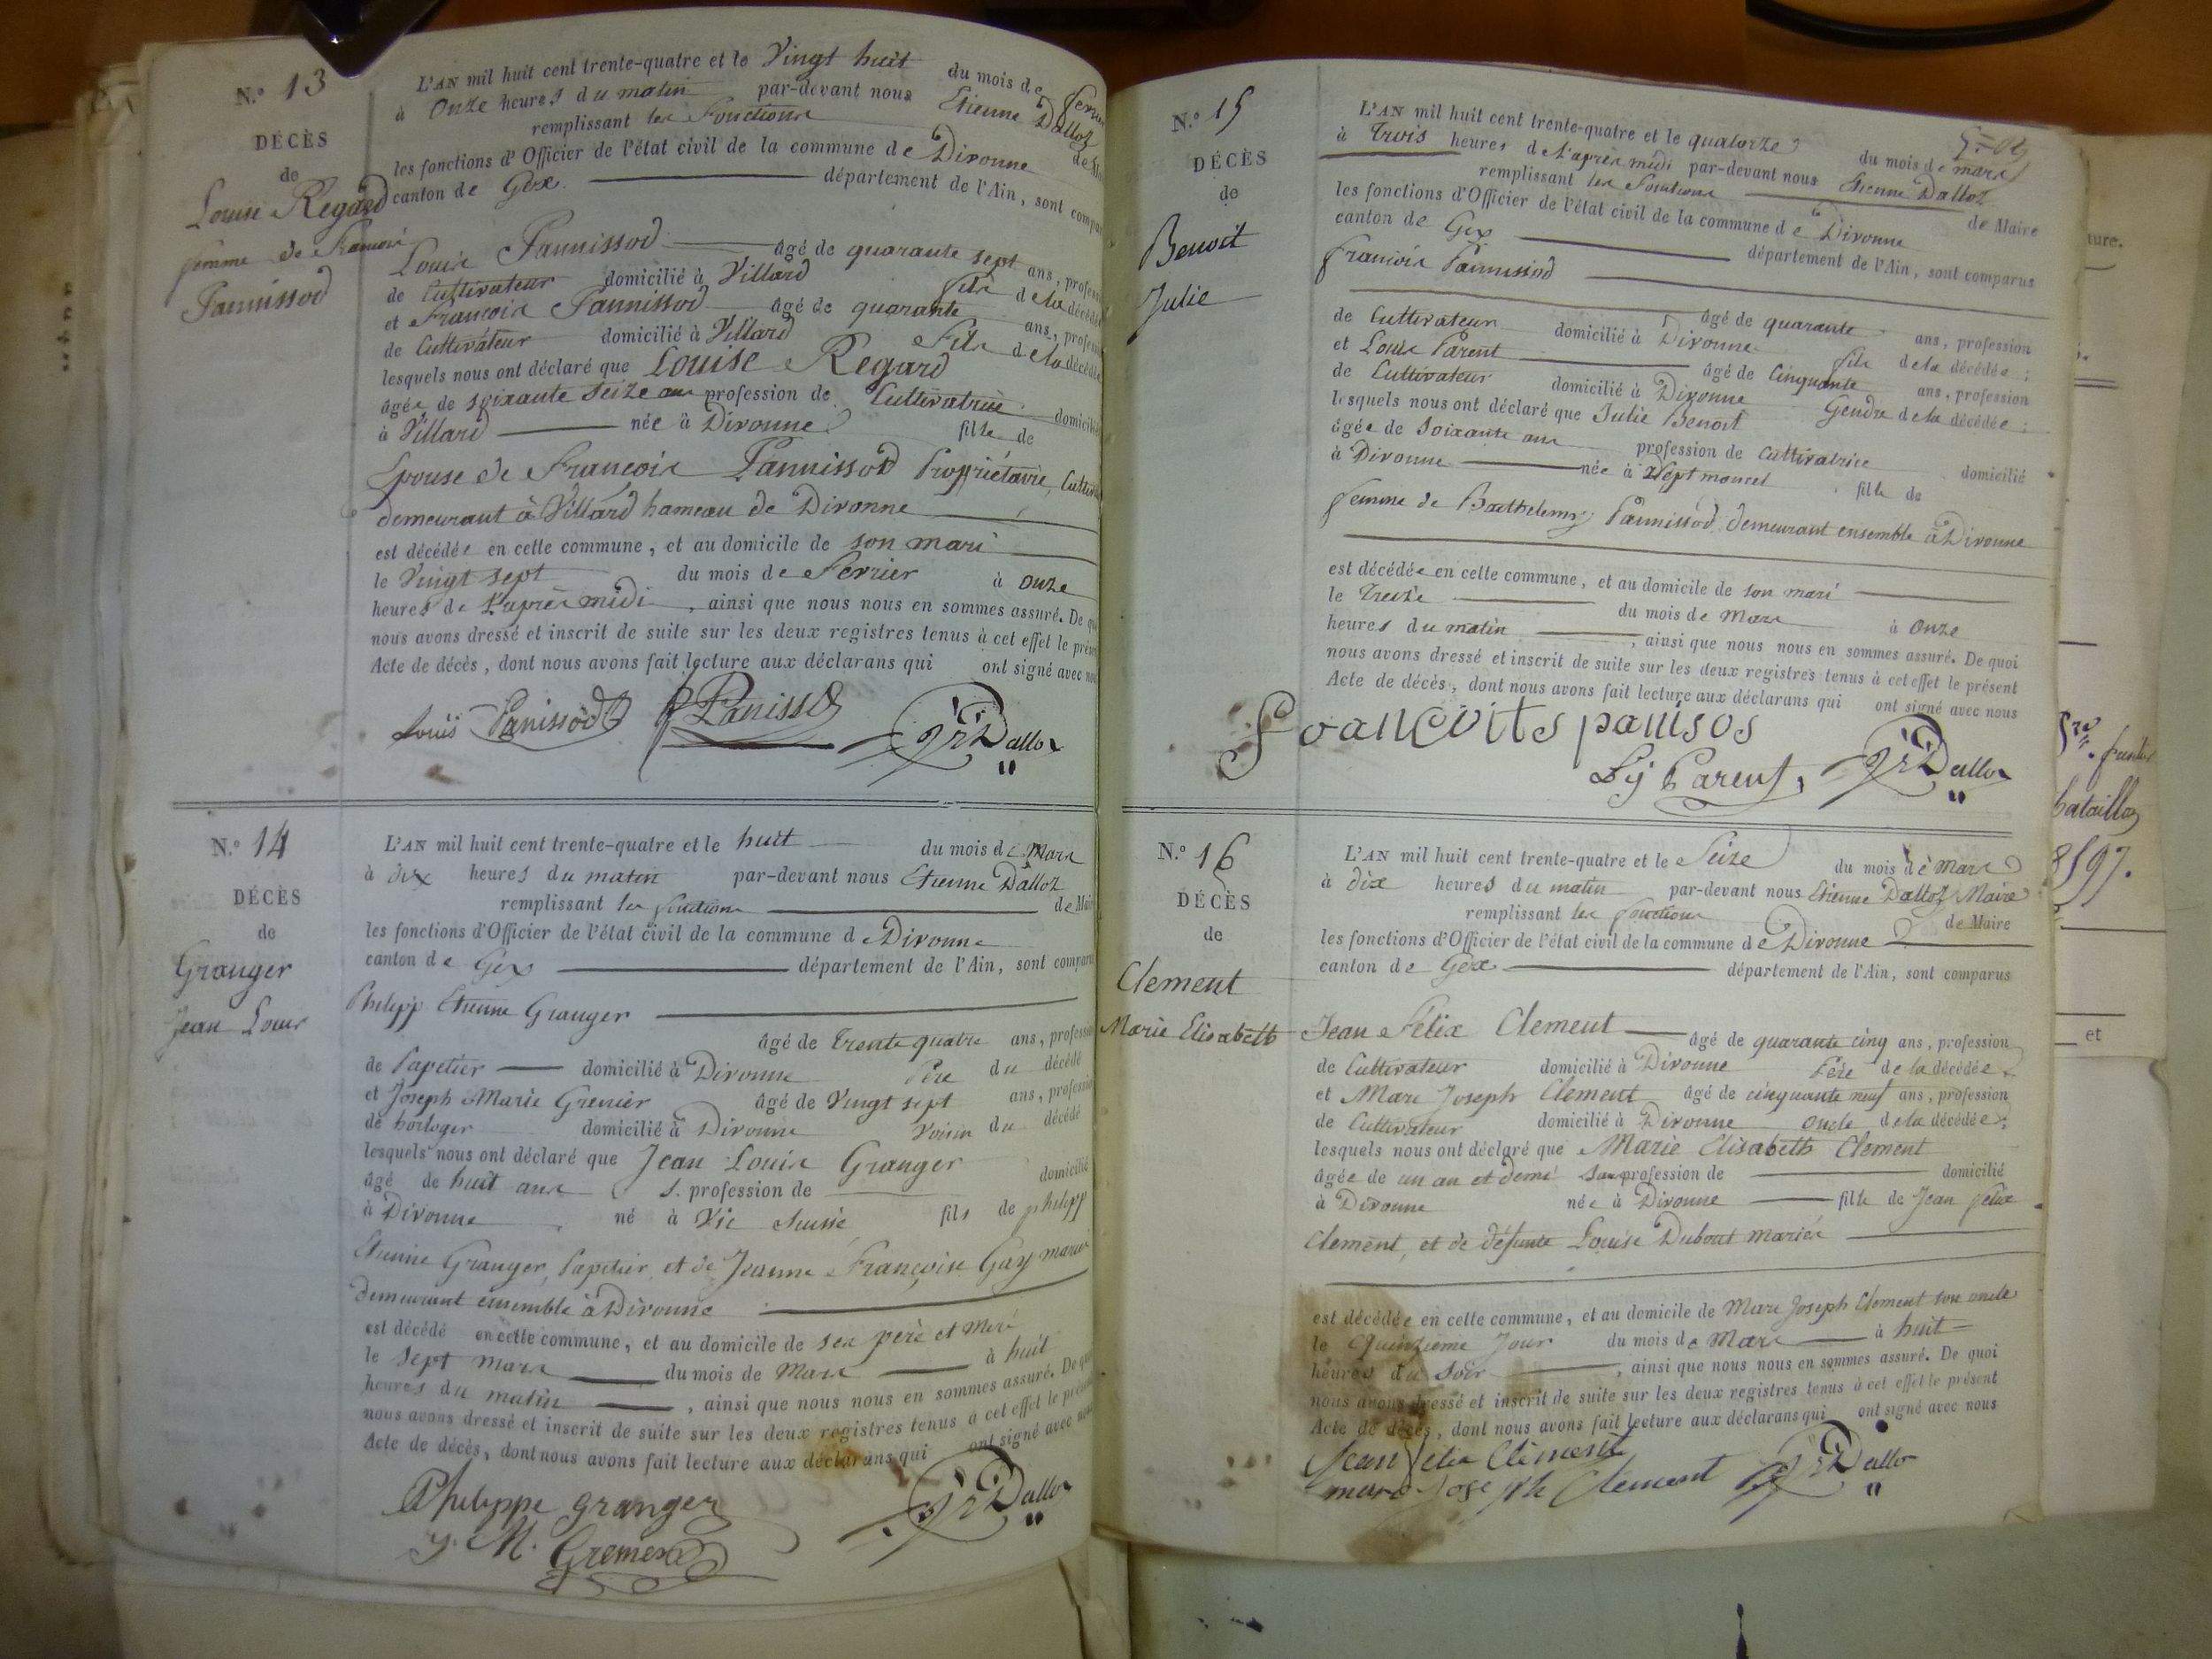 N.° 13
DÉCÈS
de
Louise Regard
femme de Francois
Pannissod
L'AN mil huit cent trente-quatre et le Vingt huit du mois de
à Onze heures du matin par-devant nous Etienne Dalloz
remplissant les Fonctions
les fonctions d'Officier de l'état civil de la commune de Divonne
canton de Gex département de l'Ain, sont
Louis Pannissod âgé de quarante sept ans,
de Cultivateur domicilié à Villard fils de la
et Francois Pannissod âgé de quarante ans,
de Cultivateur domicilié à Villard Fils de la
lesquels nous ont déclaré que Louise Regard
âgée de soixante seize ans profession de Cultivatrice
à Villard née à Divonne fille de
Epouse de Francois Pannissod Propriétaire,
demeurant à Villard hameau de Divonne
est décédée en cette commune, et au domicile de son mari
le Vingt sept du mois de Fevrier à onze
heures de l'après midi, ainsi que nous nous en sommes assuré. De
nous avons dressé et inscrit de suite sur les deux registres tenus à cet effet le
Acte de décès, dont nous avons fait lecture aux déclarans qui ont signé avec
Louis Panissod Panissod Dalloz
N.° 14
DÉCÈS
de
Granger
Jean Louis
L'AN mil huit cent trente-quatre et le huit du mois de Mars
à dix heures du matin par-devant nous Etienne Dalloz
remplissant les fonctions de
les fonctions d'Officier de l'état civil de la commune de Divonne
canton de Gex département de l'Ain, sont
Philipp Etienne Granger
âgé de trente quatre ans,
de Papetier domicilié à Divonne Père du décédé
et Joseph Marie Grenier âgé de Vingt sept ans,
de horloger domicilié à Divonne Voisin du décédé
lesquels nous ont déclaré que Jean Louis Granger
âgé de huit ans S. profession de domicilié
à Divonne né à Vic Suisse fils de philipp
Etienne Granger, Papetier, et de Jeanne Françoise Gay
demeurant ensemble à Divonne
est décédé en cette commune, et au domicile de ses père et Mere
le Sept mars du mois de Mars à huit
heures du matin, ainsi que nous nous en sommes assuré. De
nous avons dressé et inscrit de suite sur les deux registres tenus à cet effet le
Acte de décès, dont nous avons fait lecture aux déclarans qui ont signé avec
Philippe granger Dalloz
J. M. Gremer
N.° 15
DÉCÈS
de
Benoit
Julie
L'AN mil huit cent trente-quatre et le quatorze du mois de mars
à trois heures de l'après midi par-devant nous Etienne Dalloz
remplissant les Fonctions de Maire
les fonctions d'Officier de l'état civil de la commune de Divonne
canton de Gex département de l'Ain, sont comparus
francois Pannissod
âgé de quarante ans, profession
de Cultivateur domicilié à Divonne fils de la décédée;
et Louis Parent âgé de Cinquante ans, profession
de Cultivateur domicilié à Divonne Gendre de la décédée;
lesquels nous ont déclaré que Julie Benoit
âgée de Soixante ans profession de cultivatrice domicilié
à Divonne née à Septmoncel fille de
femme de Barthelemy Pannissod demeurant ensemble à Divonne
est décédée en cette commune, et au domicile de son mari
le Treize du mois de Mars à onze
heures du matin, ainsi que nous nous en sommes assuré. De quoi
nous avons dressé et inscrit de suite sur les deux registres tenus à cet effet le présent
Acte de décès, dont nous avons fait lecture aux déclarans qui ont signé avec nous
Francoits panisos
Parent Dalloz
N.° 16
DÉCÈS
de
Clement
Marie Elisabeth
L'AN mil huit cent trente-quatre et le Seize du mois de Mars
à dix heures du matin par-devant nous Etienne Dalloz Maire
remplissant les fonctions de Maire
les fonctions d'Officier de l'état civil de la commune de Divonne
canton de Gex département de l'Ain, sont comparus
Jean Felix Clement âgé de quarante cinq ans, profession
de Cultivateur domicilié à Divonne Père de la décédée
et Marc Joseph Clement âgé de cinquante neuf ans, profession
de Cultivateur domicilié à Divonne oncle de la décédée;
lesquels nous ont déclaré que Marie Elisabeth Clement
âgée de un an et demi San profession de domicilié
à Divonne née à Divonne fille de Jean felix
Clement, et de défunte Louise Dubout mariés
est décédée en cette commune, et au domicile de Marc Joseph Clement son oncle
le Quinzieme Jour du mois de Mars à huit
heures du Soir, ainsi que nous nous en sommes assuré. De quoi
nous avons dressé et inscrit de suite sur les deux registres tenus à cet effet le présent
Acte de décès, dont nous avons fait lecture aux déclarans qui ont signé avec nous
Jean felix Clement
marc Joseph Clement Dalloz
bataillon
et